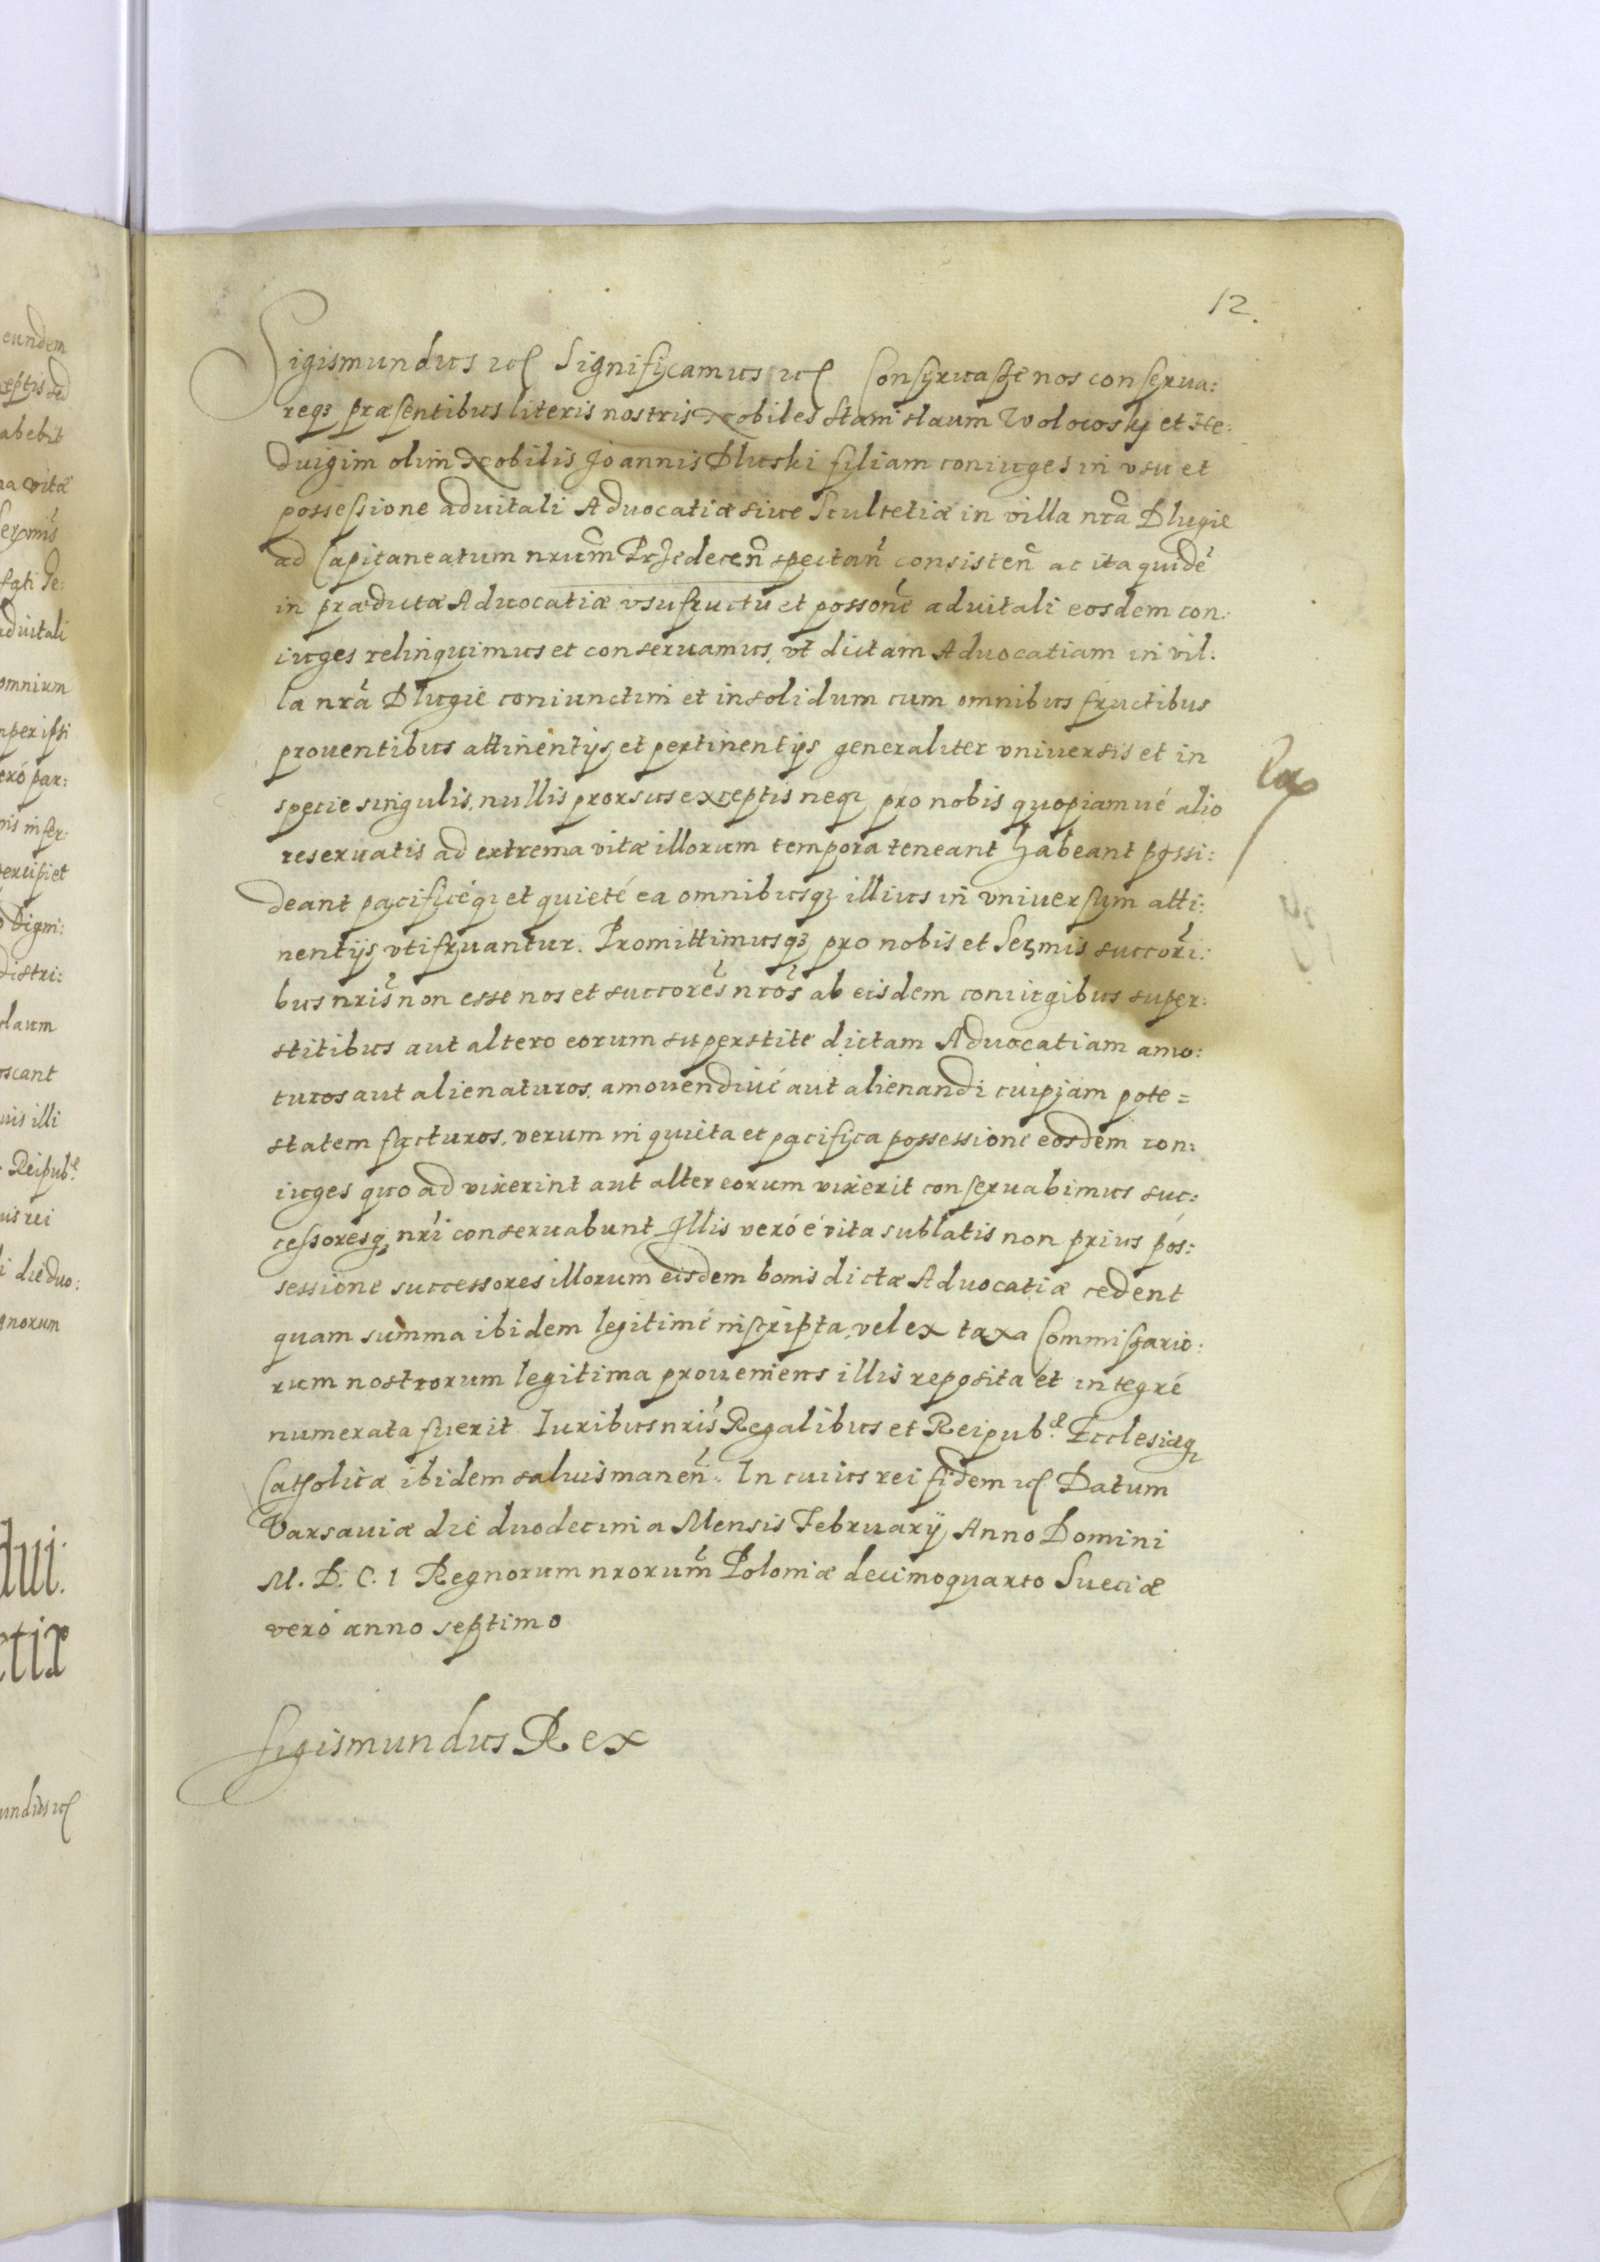 12.
Sigismundus etc Significamus etc Conservasse nos conserua:
reqꝫ præsentibus literis nostris Nobiles Stanislaum Wolowsky et He:
duigim olim Nobilis Joannis Dluski filiam coniuges in vsu et
possessione aduitali Aduocatiæ siue Scultetiæ in villa nrã Dlugie
ad Capitaneatum nrum̃ Przedecen̄ spectan̄ consisten̄ ac ita quidē
in prædictæ Aduocatiæ vsufructu et possone aduitali eosdem con:
iuges relinquimus et conseruamus, vt dictam Aduocatiam in vil:
la nrã Dlugie coniunctim et insolidum cum omnibus fructibus
prouentibus attinentijs et pertinentijs generaliter vniuersis et in
specie singulis, nullis prorsus exceptis neqꝫ pro nobis quopiamué alio
reseruatis ad extrema vitæ illorum tempora teneant habeant possi:
deant pacificéqꝫ et quieté ea omnibusqꝫ illius in vniuersum atti:
nentijs vtifruantur. Promittimusqꝫ pro nobis et Serm̃is succori:
bus nris̃ non esse nos et succores̃ nros̃ ab eisdem coniugibus super:
stitibus aut altero eorum superstite dictam Aduocatiam amo:
turos aut alienaturos, amouendiué aut alienandi cuipiam pote=
statem facturos, verum in quieta et pacifica possessione eosdem con:
iuges quo ad vixerint aut alter eorum vixerit conseruabimus suc:
cessoresqꝫ nri̇ conseruabunt Illis veró é vita sublatis non prius pos:
sessione successores illorum eisdem bonis dictæ Aduocatiæ cedent
quam summa ibidem legitimé inscripta, vel ex taxa Commissario:
rum nostrorum legitima proueniens illis reposita et integré
numerata fuerit Iuribus nris̃ Regalibus et Reipub.æ Ecclesiæqꝫ
Catholicæ ibidem saluis manen̄. In cuius rei fidem etc Datum
Varsauiæ die duodecima Mensis February Anno Domini
M. D. C. I Regnorum nrorum̃ Poloniæ decimoquarto Sueciæ
veró anno septimo
Sigismundus Rex